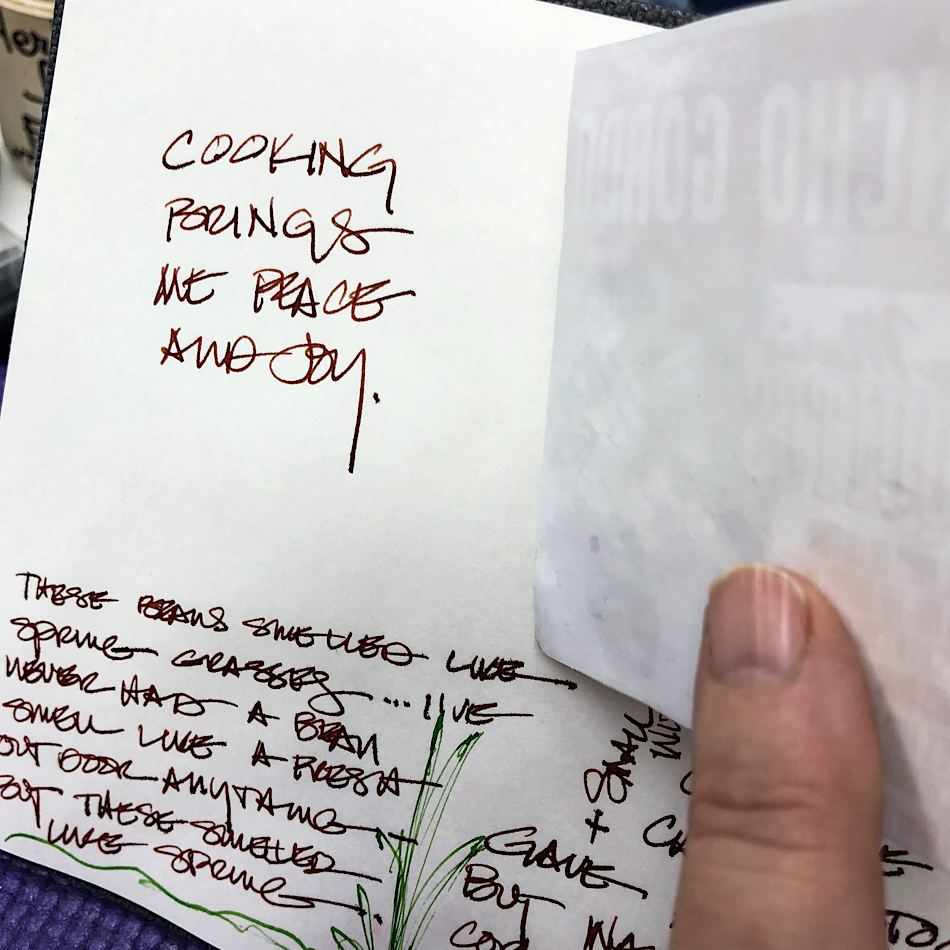 COOKING
BRINGS
ME PEACE
AND JOY.
THESE BEANS SMELLED LIKE
SPRING GRASSES ... I'VE
NEVER HAD A BEAN
SMELL LIKE A FRESH
OUTDOOR ANYTHING
BUT THESE SMELLED
LIKE SPRING
SMALL
+
GAVE
BUT